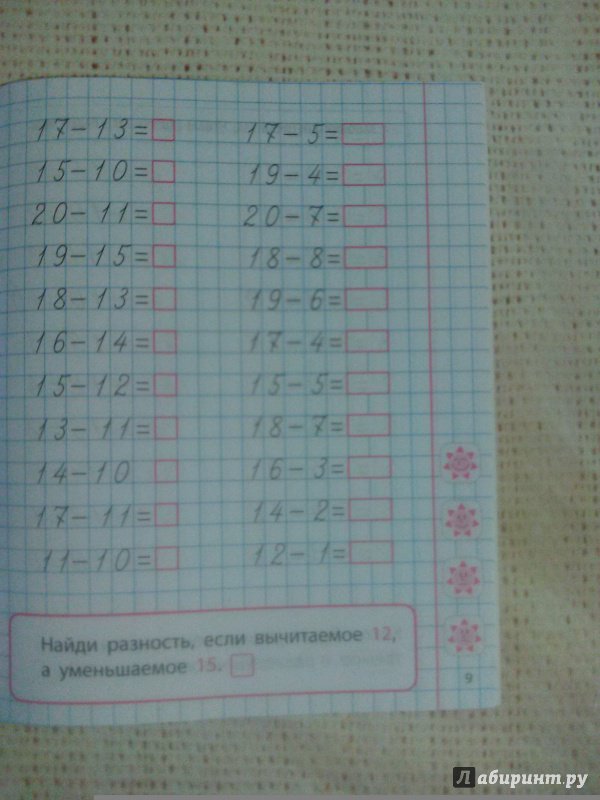 17-13=
17-5=
15-10=
19-4=
20-11=
20-7=
19-15=
18-8=
18-13=
19-6=
16-14=
17-4=
15-12=
15-5=
13-11=
18-7=
14-10
16-3=
17-11=
14-2=
11-10=
12-1=
Найди разность, если вычитаемое 12,
а уменьшаемое 15.
9
Лабиринт.ру